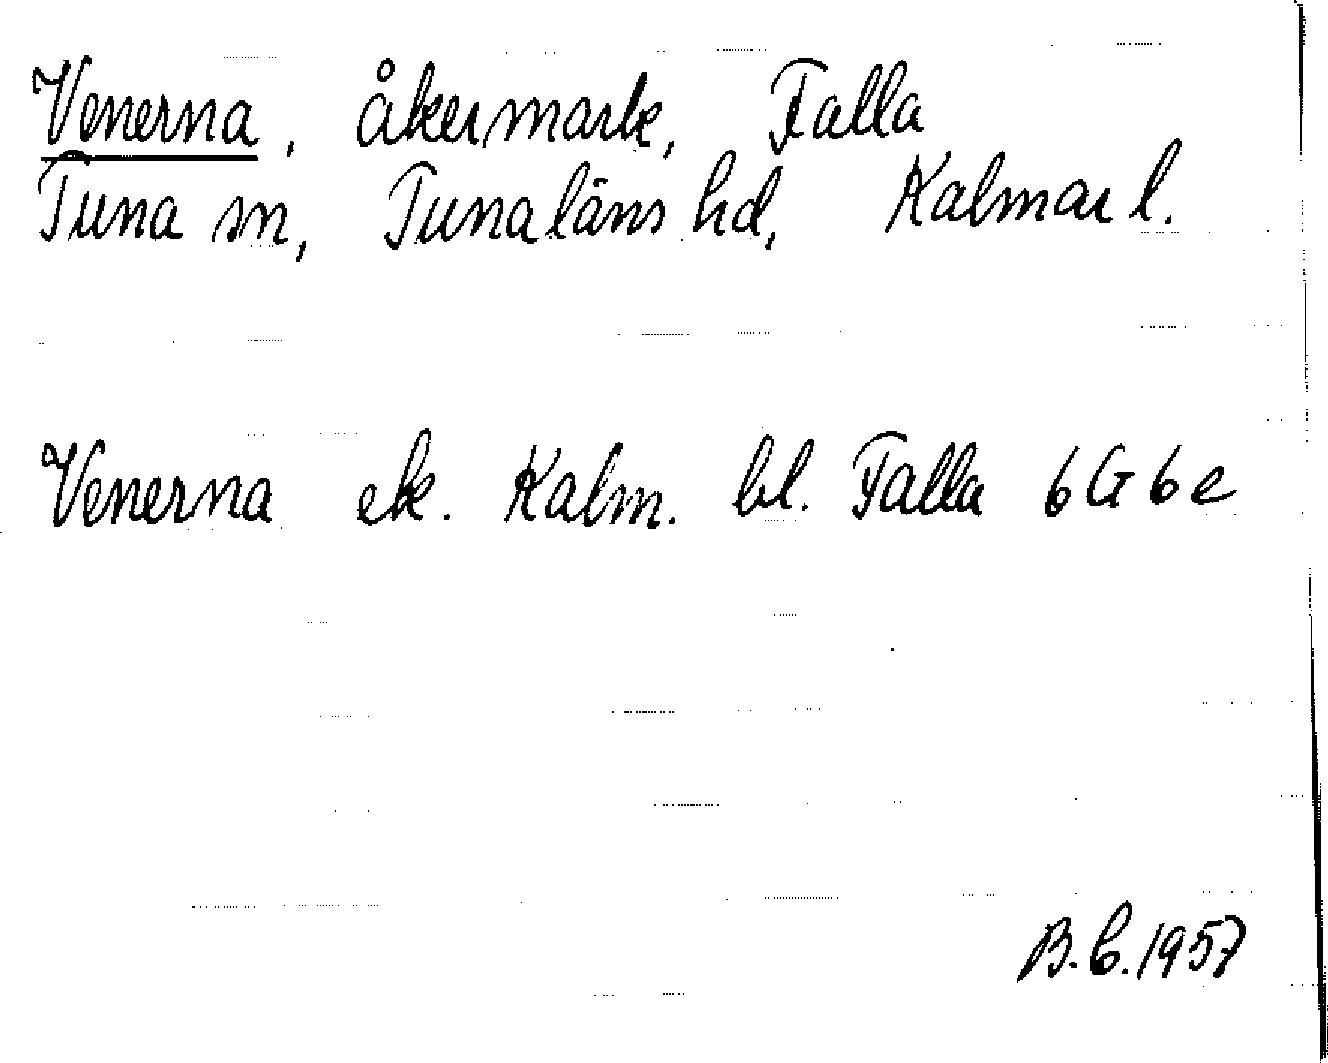 Venerna, åkermark, Falla
Tuna sn, Tunaläns hd, Kalmar l.
Venerna ek. Kalm. bl. Falla 6G6e
B.C.1957